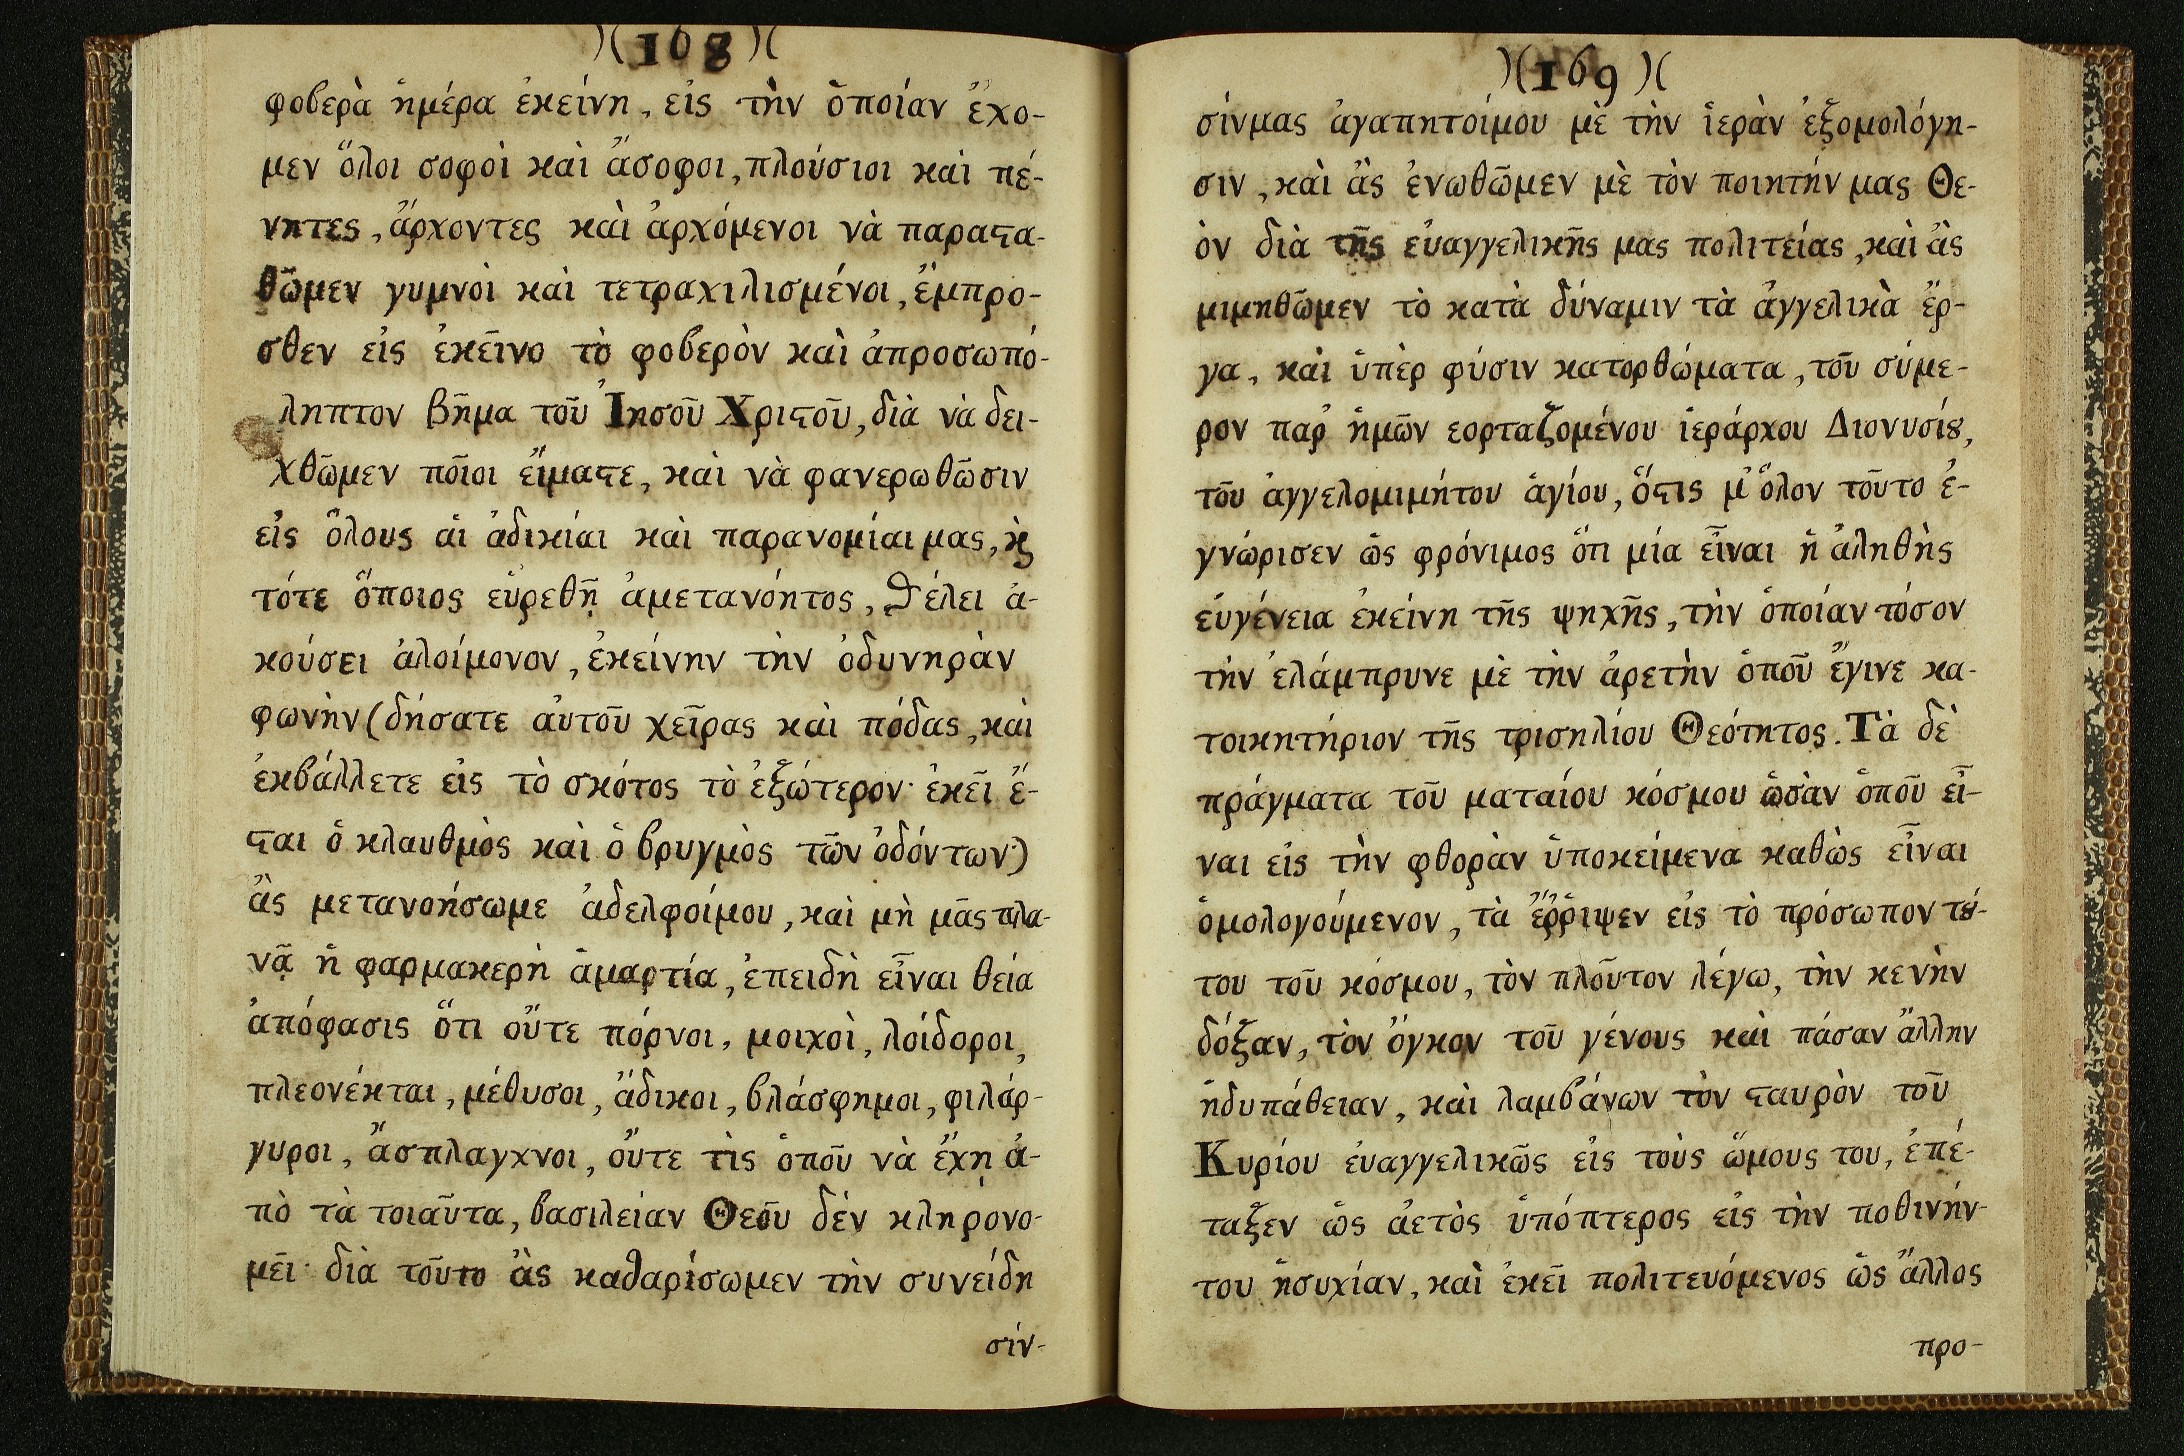 )( 168 )(
φοβερὰ ἡμέρα ἐκείνη, εἰς τὴν ὁποίαν ἔχο-
μεν ὅλοι σοφοὶ καὶ ἄσοφοι, πλούσιοι καὶ πέ-
νητες, ἄρχοντες καὶ ἀρχόμενοι νὰ παραϛα-
θῶμεν γυμνοὶ καὶ τετραχιλισμένοι, ἔμπρο-
σθεν εἰς ἐκεῖνο τὸ φοβερὸν καὶ ἀπροσωπό-
ληπτον βῆμα τοῦ Ἰησοῦ Χριϛοῦ, διὰ νὰ δει-
χθῶμεν ποῖοι εἴμαϛε, καὶ νὰ φανερωθῶσιν
εἰς ὅλους ἁι ἀδικίαι καὶ παρανομίαι μας, ϗ
τότε ὅποιος εὑρεθῇ ἀμετανόητος, ϑέλει ἀ-
κούσει ἀλοίμονον, ἐκείνην τὴν ὀδυνηρὰν
φωνὴν (δήσατε ἀυτοῦ χεῖρας καὶ πόδας, καὶ
ἐκβάλλετε εἰς τὸ σκότος τὸ ἐξώτερον· ἐκεῖ ἔ-
ϛαι ὁ κλαυθμὸς καὶ ὁ βρυγμὸς τῶν ὀδόντων·)
ἂς μετανοήσωμε ἀδελφοίμου, καὶ μὴ μᾶς πλα-
νᾷ ἡ φαρμακερὴ ἁμαρτία, ἐπειδὴ εἶναι θεία
ἀπόφασις ὅτι οὔτε πόρνοι, μοιχοὶ, λοίδοροι,
πλεονέκται, μέθυσοι, ἄδικοι, βλάσφημοι, φιλάρ-
γυροι, ἄσπλαγχνοι, οὔτε τὶς ὁποῦ νὰ ἔχῃ ἀ-
πὸ τὰ τοιαῦτα, βασιλείαν Θεοῦ δέν κληρονο-
μεῖ· διὰ τοῦτο ἂς καθαρίσωμεν τὴν συνείδη
σίν-
)( 169 )(
σίνμας ἀγαπητοίμου μὲ τὴν ἱερὰν ἐξομολόγη-
σιν, καὶ ἂς ἑνωθῶμεν μὲ τὸν ποιητήν μας Θε-
ὸν διὰ τῆς εὐαγγελικῆς μας πολιτείας, καὶ ἂς
μιμηθῶμεν τὸ κατὰ δύναμιν τὰ ἀγγελικὰ ἔρ-
γα, καὶ ὑπὲρ φύσιν κατορθώματα, τοῦ σύμε-
ρον παρ' ἡμῶν εορταζομένου ἱεράρχου Διονυσίȣ,
τοῦ ἀγγελομιμήτου ἁγίου, ὅϛις μ' ὅλον τοῦτο ἐ-
γνώρισεν ὡς φρόνιμος ὅτι μία εἶναι ἡ ἀληθὴς
εὐγένεια ἐκείνη τῆς ψηχῆς, τὴν ὁποίαν τόσον
τὴν ἐλάμπρυνε μὲ τὴν ἀρετὴν ὁποῦ ἔγινε κα-
τοικητήριον τῆς τρισηλίου Θεότητος. Τὰ δὲ
πράγματα τοῦ ματαίου κόσμου ὡσὰν ὁποῦ εἶ-
ναι εἰς τὴν φθορὰν ὑποκείμενα καθὼς εἶναι
ὁμολογούμενον, τὰ ἔῤῥιψεν εἰς τὸ πρόσωπον τȣ́-
του τοῦ κόσμου, τὸν πλοῦτον λέγω, τὴν κενὴν
δόξαν, τὸν ὄγκον τοῦ γένους καὶ πάσαν ἄλλην
ἡδυπάθειαν, καὶ λαμβάνων τὸν ϛαυρὸν τοῦ
Κυρίου ἐυαγγελικῶς εἰς τοὺς ὤμους του, ἐπέ-
ταξεν ὡς ἀετὸς ὑπόπτερος εἰς τὴν ποθινήν-
του ἡσυχίαν, καὶ ἐκεῖ πολιτευόμενος ὡς ἄλλος
προ-